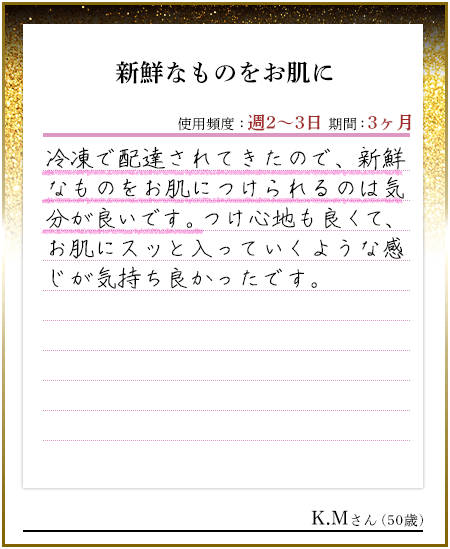 新鮮なものをお肌に
使用頻度：週2〜3日 期間：3ヶ月
冷凍で配達されてきたので、新鮮
なものをお肌につけられるのは気
分が良いです。つけ心地も良くて、
お肌にスッと入っていくような感
じが気持ち良かったです。
K.Mさん（50歳）